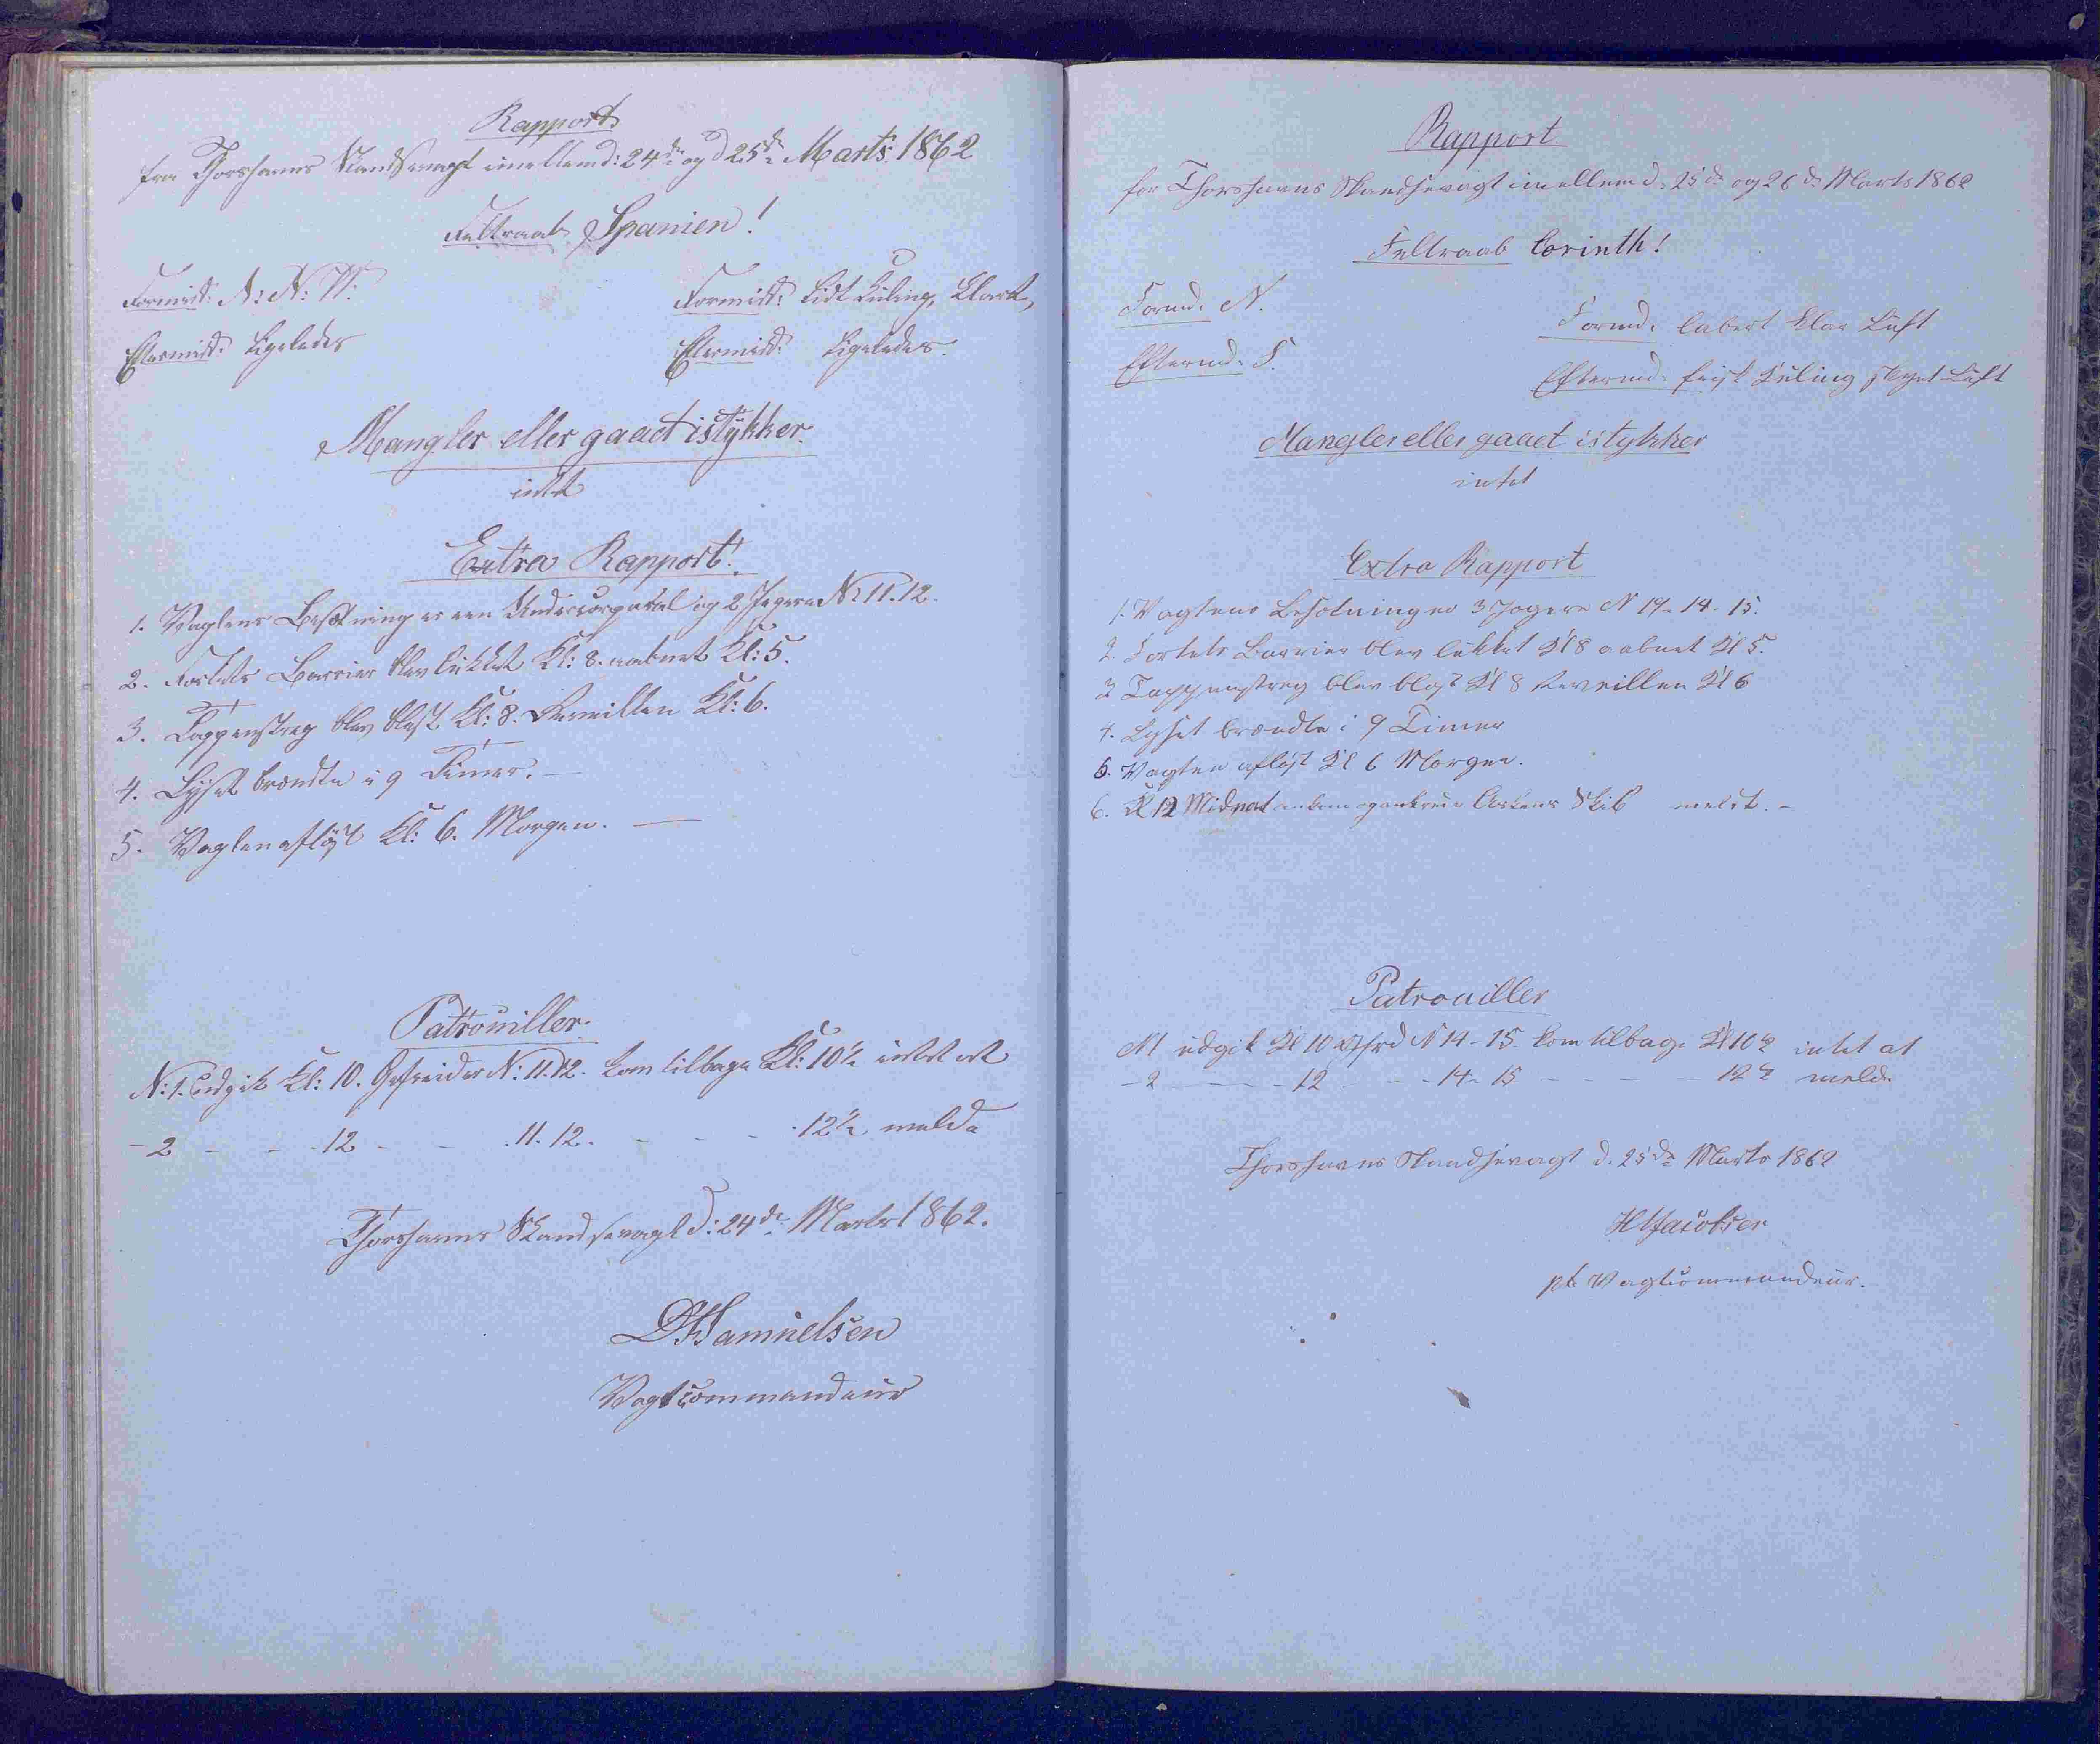 Rapport
fra Thorshavns Skandsevagt imellem d: 24de og d 25de Marts 1862
Feltraab Spanien!
Formidd: N: N: W:
Formidd: Lidt Kuling, Klart,
Eftermidd: Ligeledes
Eftermidd: Ligeledes.
Mangler eller gaaet istykker.
intet
Extra Rapport!
1. Vagtens Besætning er een Undercorporal og 2 Jægere N: 11. 12.
2. Fortets Barrier blev lukket Kl: 8. aabnet Kl: 5.
3. Tappenstreg blev blæst Kl: 8. Reveillen Kl: 6.
4. Lyset brændte i 9 Timer. —
5. Vagten afløst Kl: 6. Morgen. —
Patrouiller.
N: 1. Udgik Kl: 10. Gefreider N: 11. 12. kom tilbage Kl: 10½ intet at
- 2 - - - 12 - - . 11. 12. - - - - 12½ melde
Thorshavns Skandsevagt d: 24de Marts 1862.
Samuelsen
Vagtcommandeur
Rapport
for Thorshavns Skandsevagt imellem d. 25de og 26de Marts 1862
Feltraab Corinth!
Formd. N.
Formd. labert klar Luft
Eftermd. S.
Eftermd. frisk Kuling skyet Luft
Mangler eller gaaet istykker
intet
Extra Rapport
1. Vagtens Besætning er 3 Jægere N 19 - 14 - 15.
2. Fortets Barrier blev lukket Kl 8 aabnet Kl 5.
3 Tappenstreg blev blæst Kl 8 Reveillen Kl 6
4. Lyset brændte i 9 Timer
5. Vagten afløst Kl 6 Morgen.
6. Kl 12 Midnat ankom Skib meldt. -
Patrouiller
N1 udgik Kl 10 Gfrd N 14 - 15. kom tilbage Kl 10½ intet at
- 2 - - - 12 - - 14 - 15 - - - - 12½ melde
Thorshavns Skandsevagt d. 25de Marts 1862
Jacobsen
pt Vagtcommandeur.